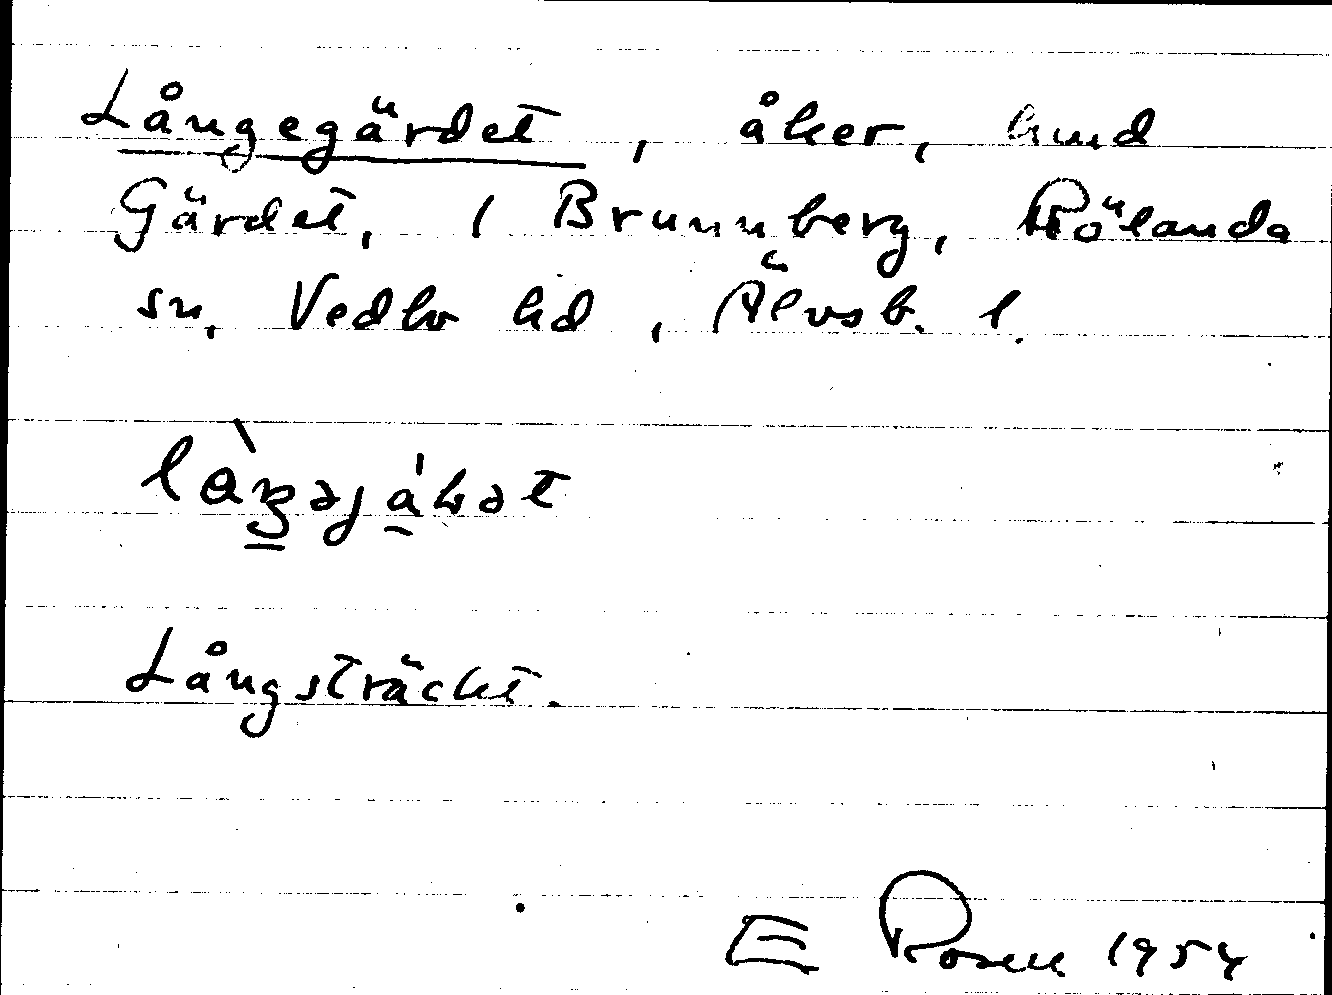 Långegärdet, åker, hmd
Gärdet, 1 Brunnberg, Rölanda
sn, Vedbo hd, Älvsb. l.
Långsträckt.
E Rosen 1954